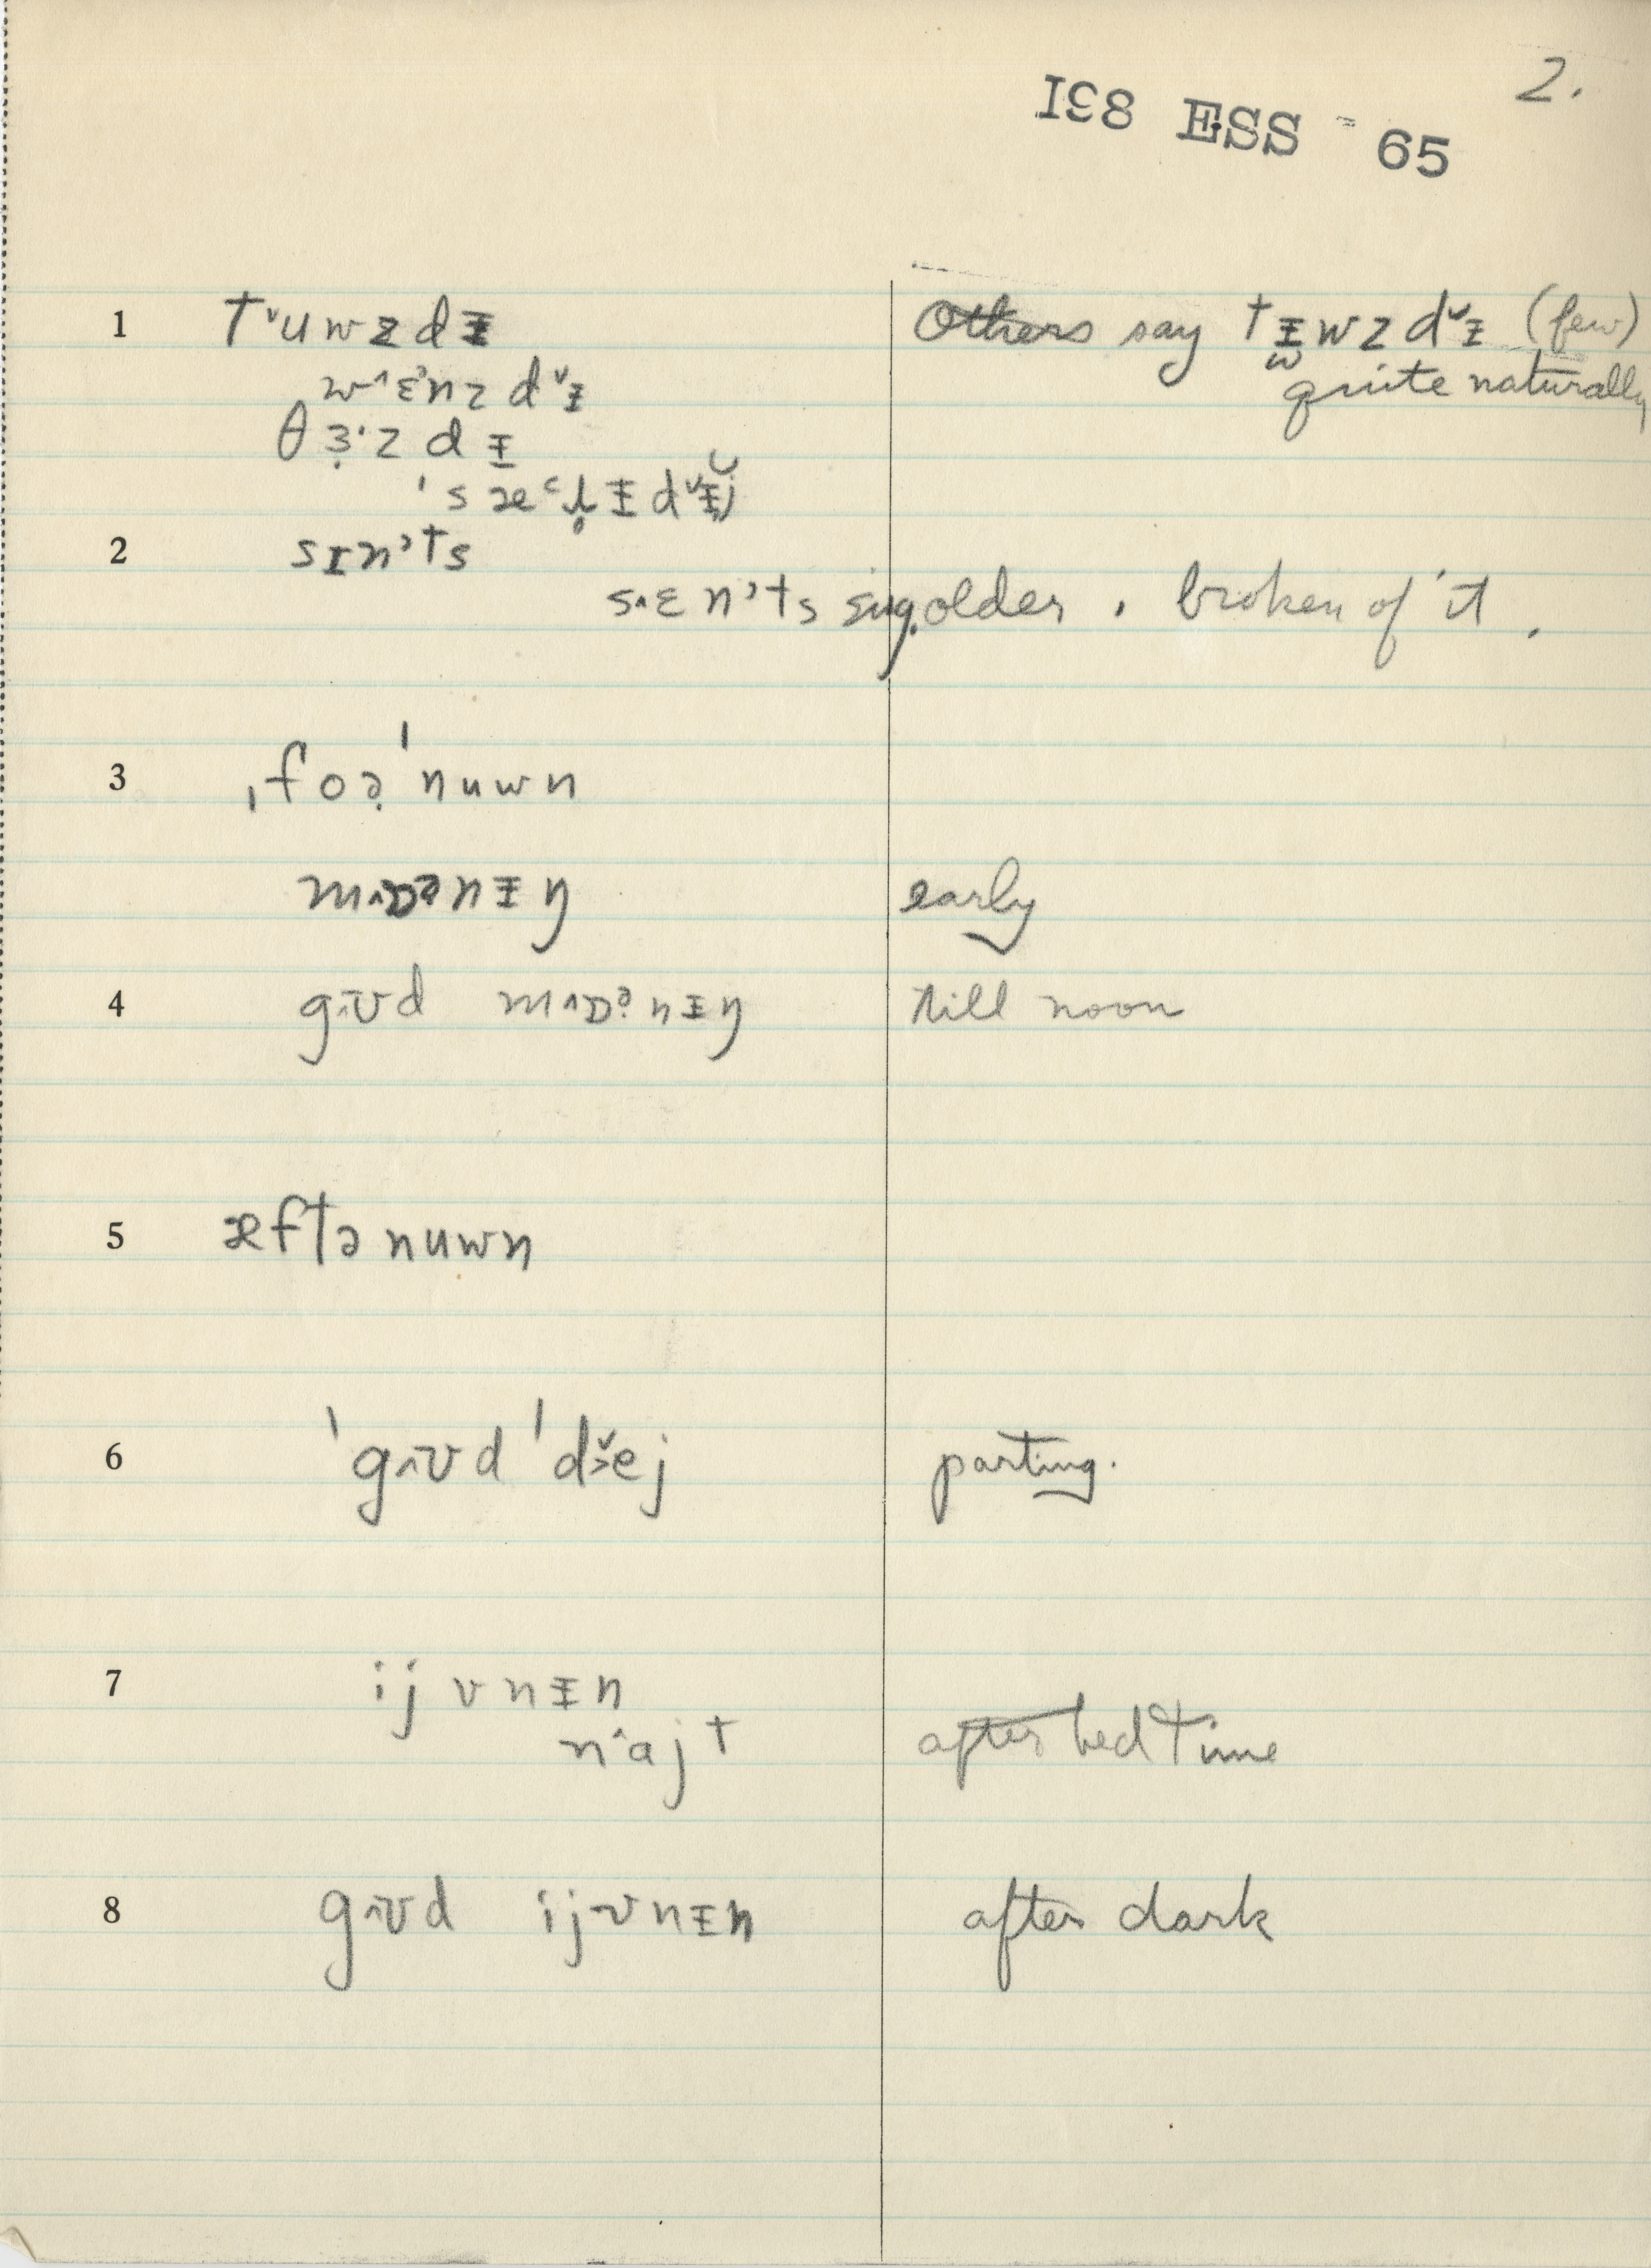 2.
I98 ESS 65
1 t˅uwzdᵻ Others say tᵻwzd˅ᵻ (few)
w˄ɛᵊnzd˅ᵻ w quite naturally
θɜ̣·zdᵻ
ˈsæ
2 sɪnʾts
s˄ɛnʾts sing. older . broken of it .
3 ˌfoə̣ˈnuwn
m˄ɒᵊnᵻŋ early
4 g˄ʊd m˄ɒᵊnᵻŋ till noon
5 æftənuwn
6 ˈg˄ʊd ˈd˅ej parting.
7 ijvnᵻn
n˄ajt after bed time
8 g˄ʊd ijvnᵻn after dark